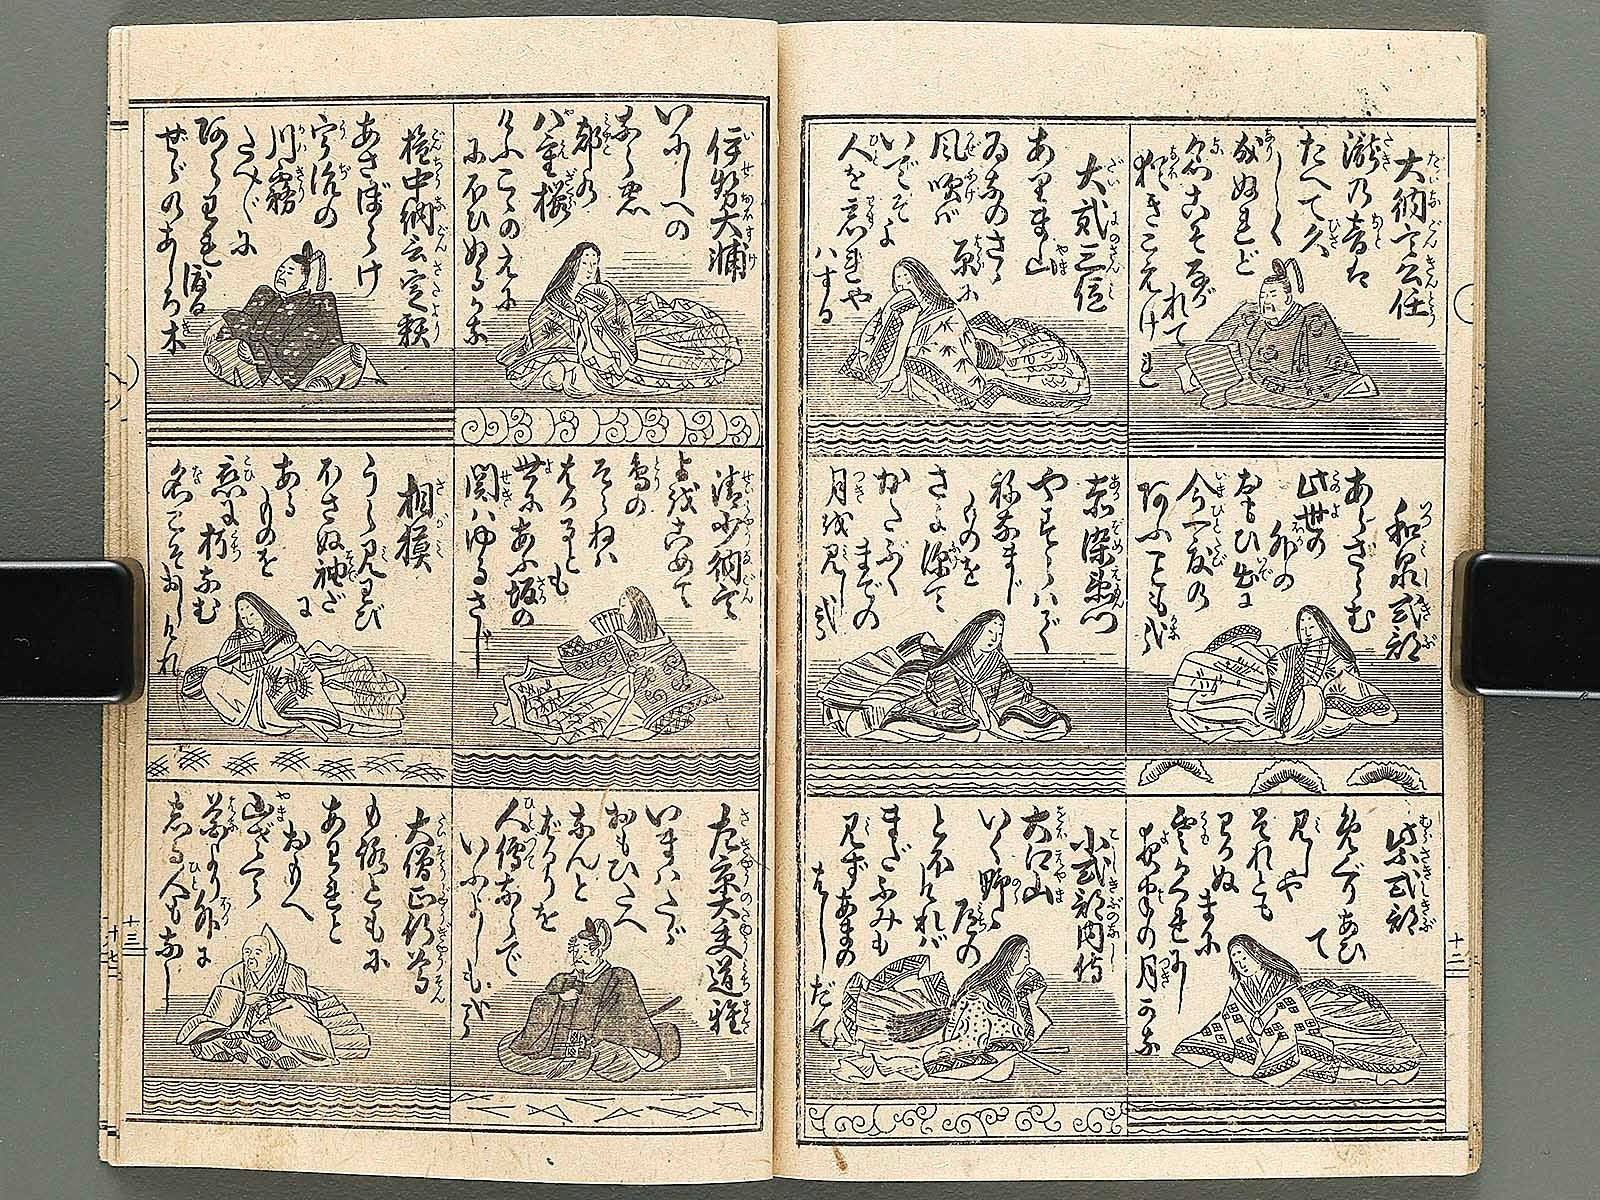 大納言公任
瀧の音は
たへて久
しく
成ぬれど
名こそながれて
猶きこえけれ
和泉式部
あらざらむ
此世の
外の
おもひ出に
今一度の
あふこともがな
紫式部
めぐりあひて
見しや
それとも
わかぬまに
雲がくれにし
夜半の月かな
大貳三位
ありま山
ゐなのさゝ
風吹ば
原に
いでそよ
人を忘れや
はする
赤染衛門
やすらはで
ねなまし
ものを
さよ深て
かたぶく
までの
月を見しかな
小式部内侍
大江山
いく野の
道の
とほければ
まだふみも
見ずあまの
はしだて
伊勢大輔
いにしへの
なら の
都の
八重桜
けふこゝのへに
にほひぬるかな
清少納言
よをこめて
鳥の
そらねは
はかるとも
世にあふ坂の
関はゆるさじ
左京大夫道雅
いまはたゞ
おもひたへ
なんと
ばかりを
人傳ならで
いふよしもがな
権中納言定頼
あさぼらけ
宇治の
川霧
たへ〴〵に
あらはれ渡る
せゞのあじろ木
相模
うらみわび
ほさぬ袖だに
ある
ものを
恋に朽なむ
名こそおしけれ
大僧正行尊
もろともに
あはれと
おもへ
山ざくら
花より外に
しる人もなし
十二
十三